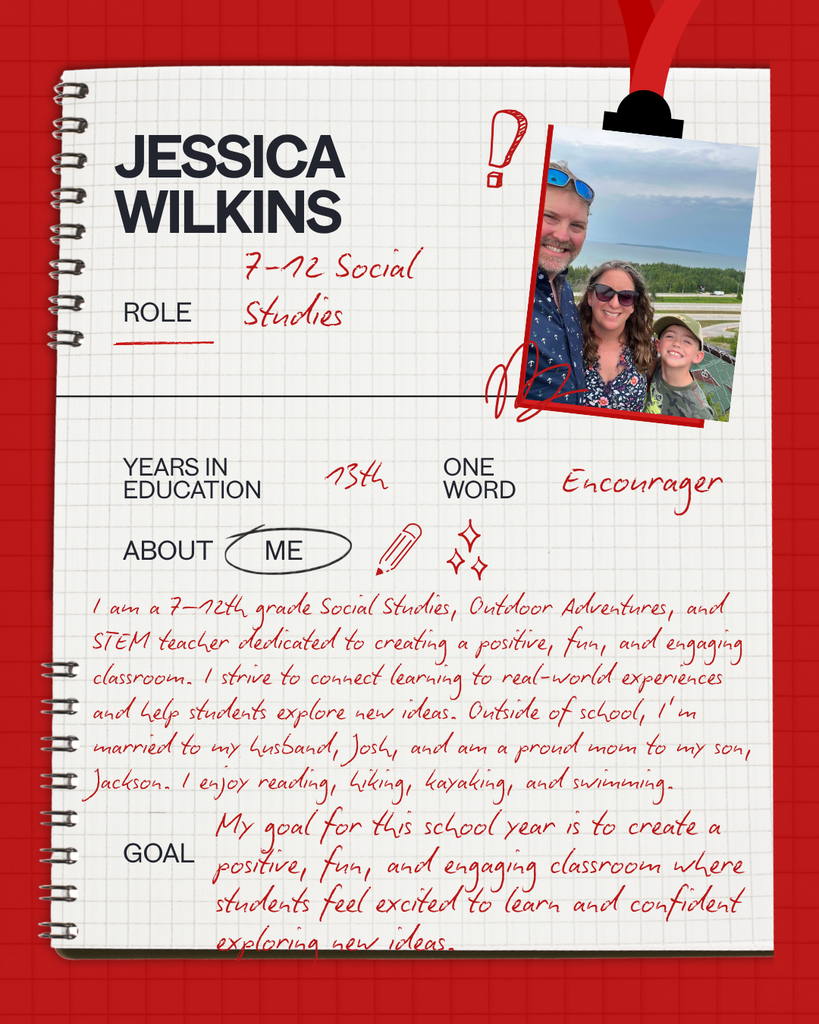 JESSICA
WILKINS
ROLE
7-12 Social
Studies
YEARS IN
EDUCATION
13th
ONE
WORD
Encourager
ABOUT ME
I am a 7-12th grade Social Studies, Outdoor Adventures, and
STEM teacher dedicated to creating a positive, fun, and engaging
classroom. I strive to connect learning to real-world experiences
and help students explore new ideas. Outside of school, I'm
married to my husband, Josh, and am a proud mom to my son,
Jackson. I enjoy reading, hiking, kayaking, and swimming.
GOAL
My goal for this school year is to create a
positive, fun, and engaging classroom where
students feel excited to learn and confident
exploring new ideas.